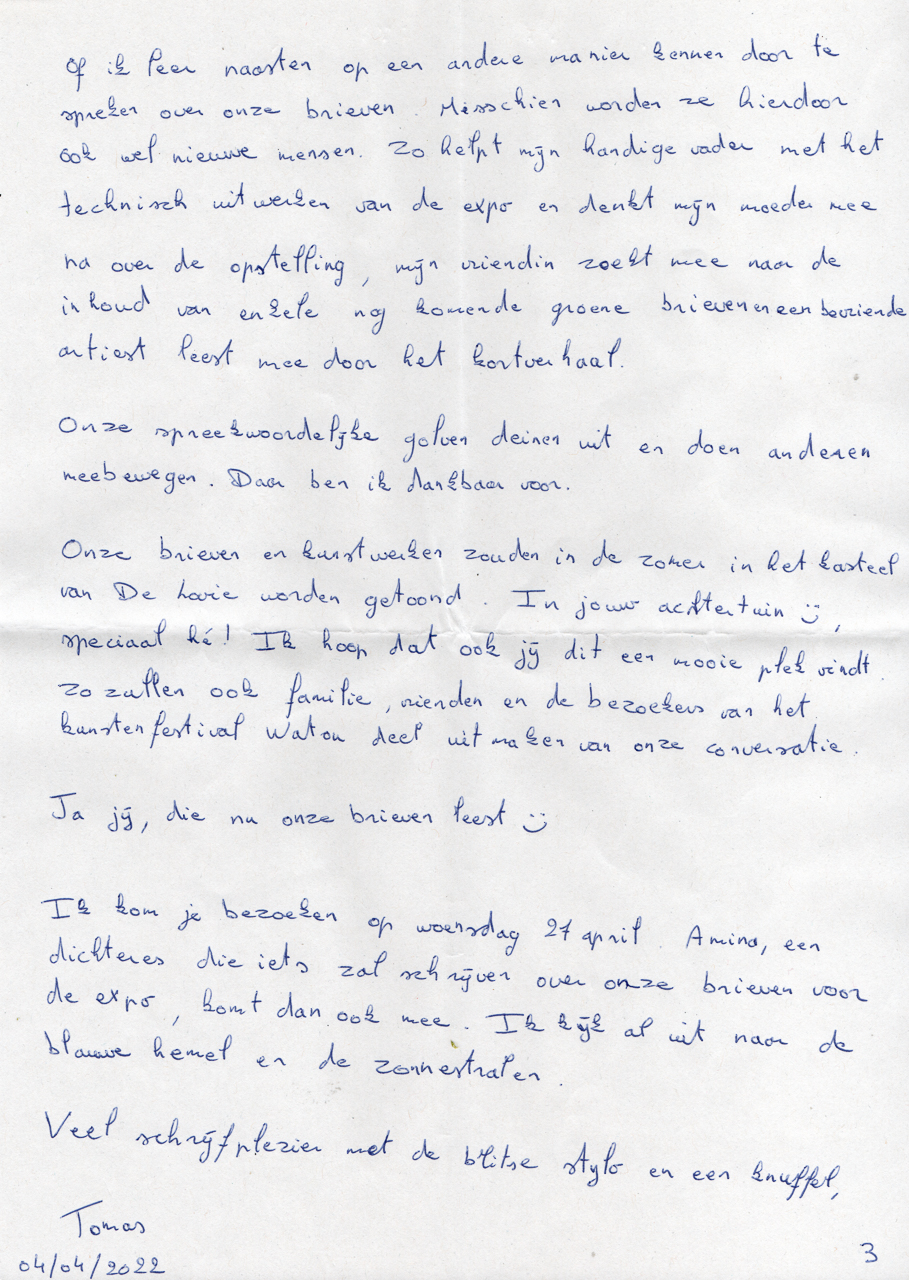 Of ik leer naasten op een andere manier kennen door te
spreken over onze brieven. Misschien worden ze hierdoor
ook wel nieuwe mensen. Zo helpt mijn handige vader met het
technisch uitwerken van de expo en denkt mijn moeder mee
na over de opstelling, mijn vriendin zoekt mee naar de
inhoud van enkele nog komende groene brieven en een bevriende
artiest leest mee door het kortverhaal.
Onze spreekwoordelijke golven deinen uit en doen anderen
meebewegen. Daar ben ik dankbaar voor.
Onze brieven en kunstwerken zouden in de zomer in het kasteel
van De Lovie worden getoond. In jouw achtertuin :),
speciaal hé! Ik hoop dat ook jij dit een mooie plek vindt.
Zo zullen ook familie, vrienden en de bezoekers van het
kunstenfestival Watou deel uitmaken van onze conversatie.
Ja jij, die nu onze brieven leest :)
Ik kom je bezoeken op woensdag 27 april. Amina, een
dichteres die iets zal schrijven over onze brieven voor
de expo, komt dan ook mee. Ik kijk al uit naar de
blauwe hemel en de zonnestralen.
Veel schrijfplezier met de blitse stylo en een knuffel,
Tomas
04/04/2022
3